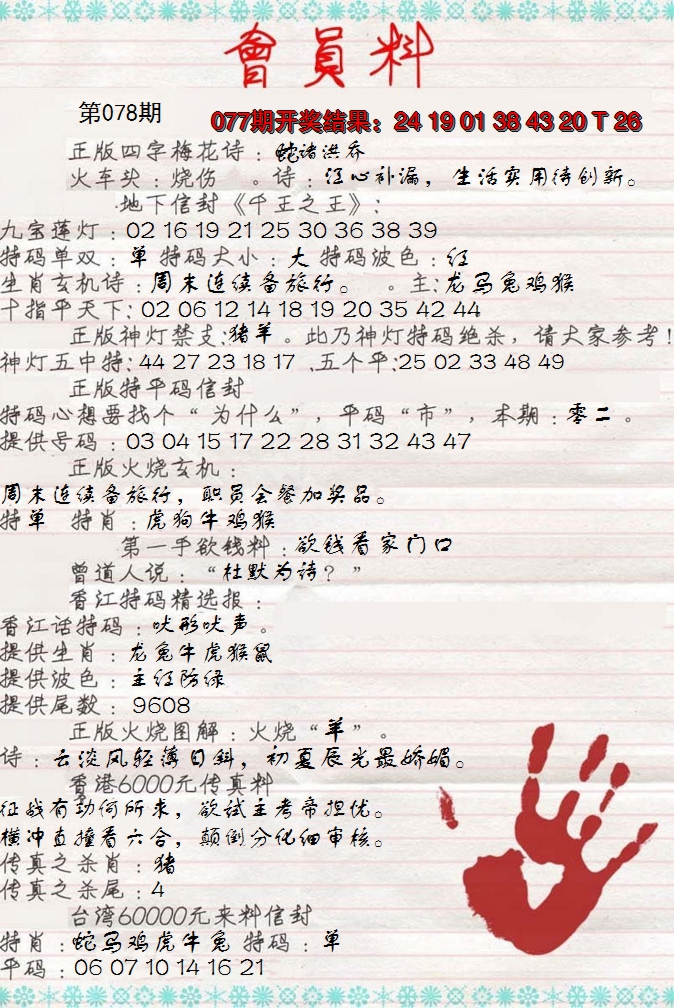 會員料
第078期
077期开奖结果：24 19 01 38 43 20 T 26
正版四字梅花诗：蛇诸洪乔
火车头：烧伤 。诗：江心补漏，生活实用待创新。
地下信封《千王之王》：
九宝莲灯：02 16 19 21 25 30 36 38 39
特码单双：单 特码大小：大 特码波色：红
生肖玄机诗：周末连续备旅行。 。主:龙马兔鸡猴
十指平天下:02 06 12 14 18 19 20 35 42 44
正版神灯禁支:猪羊。此乃神灯特码绝杀，请大家参考!
神灯五中特:44 27 23 18 17 、五个平:25 02 33 48 49
正版特平码信封
特码心想要找个“为什么”，平码“市”，本期：零二。
提供号码：03 04 15 17 22 28 31 32 43 47
正版火烧玄机：
周末连续备旅行，职员会餐加奖品。
特单 特肖：虎狗牛鸡猴
第一手欲钱料：欲钱看家门口
曾道人说：“杜默为诗？”
香江特码精选报：
香江话特码：吠形吠声。
提供生肖：龙兔牛虎猴鼠
提供波色：主红防绿
提供尾数：9608
正版火烧图解：火烧“羊”。
诗：云淡风轻薄日斜，初夏辰光最娇媚。
香港6000元传真料
征战有功何所来，欲试主考帝担优。
横冲直撞看六合，颠倒分化细审核。
传真之杀肖：猪
传真之杀尾：4
台湾60000元来料信封
特肖：蛇马鸡虎牛兔 特码：单
平码：06 07 10 14 16 21